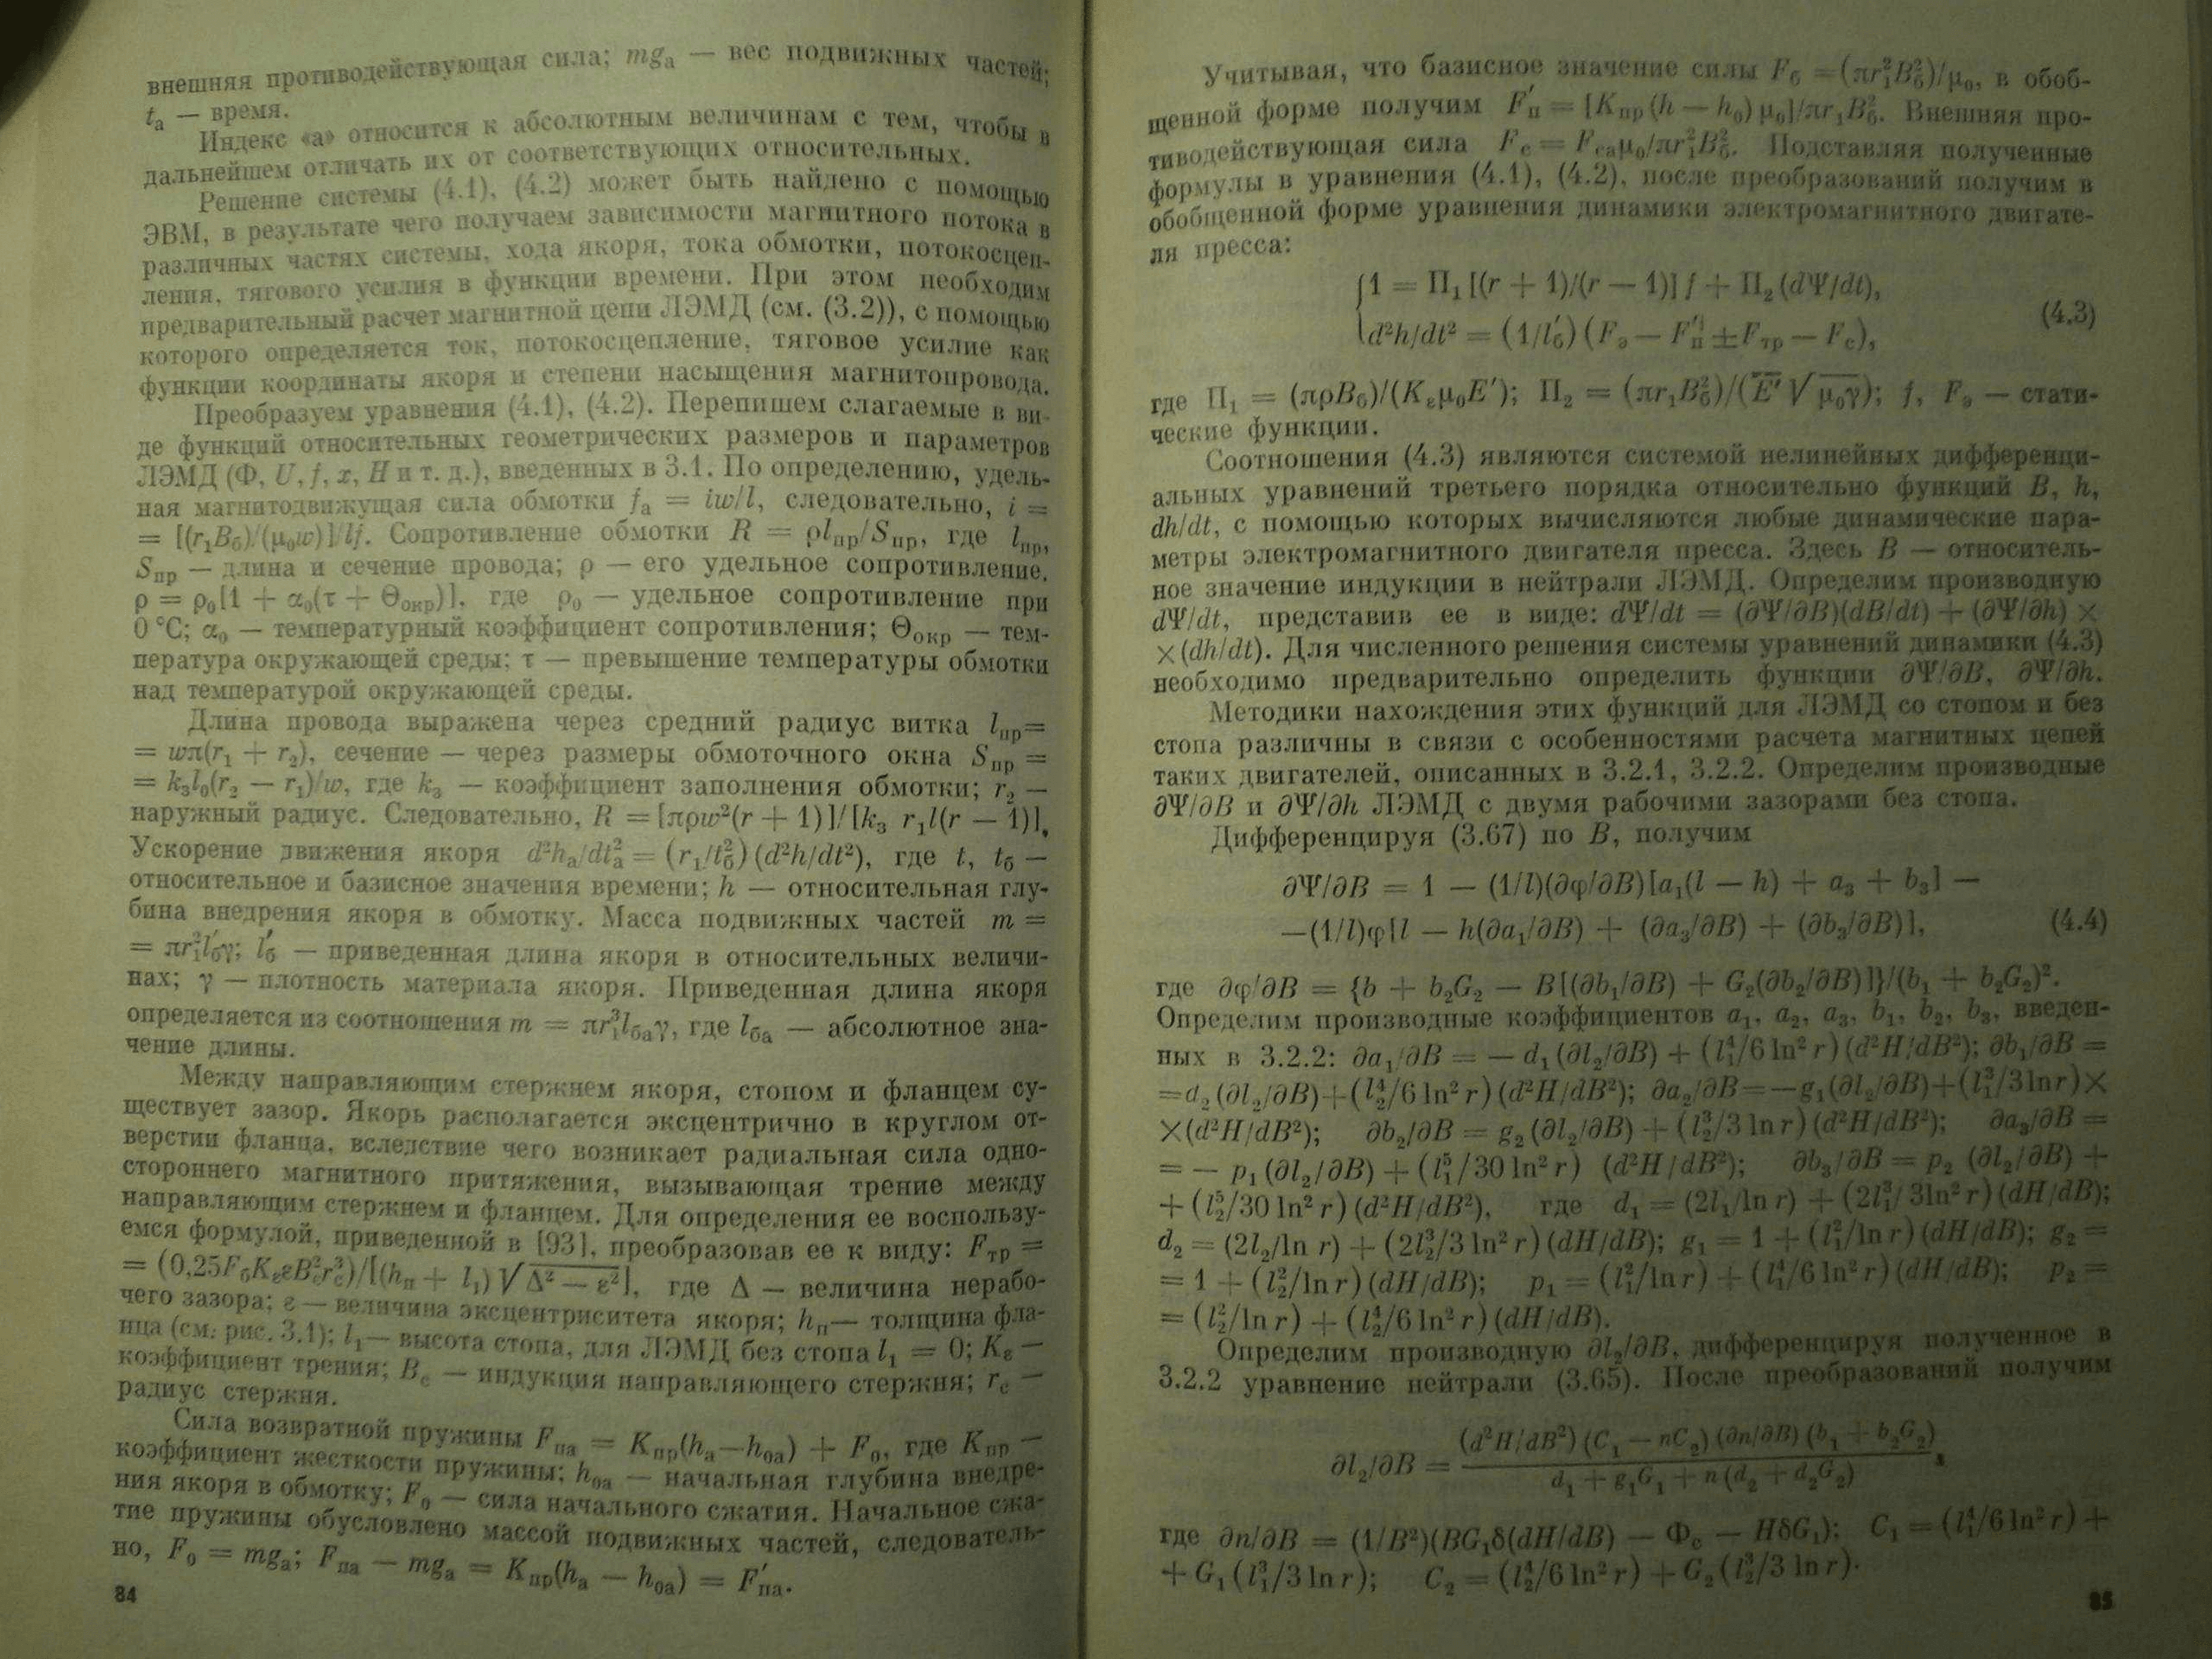 внешняя противодействующая сила; mgₐ — вес подвижных частей;
tₐ — время.
Индекс «а» относится к абсолютным величинам с тем, чтобы в
дальнейшем отличать их от соответствующих относительных.
Решение системы (4.1), (4.2) может быть найдено с помощью
ЭВМ, в результате чего получаем зависимости магнитного потока в
различных частях системы, хода якоря, тока обмотки, потокосцеп-
ления, тягового усилия в функции времени. При этом необходим
предварительный расчет магнитной цепи ЛЭМД (см. (3.2)), с помощью
которого определяется ток, потокосцепление, тяговое усилие как
функции координаты якоря и степени насыщения магнитопровода.
Преобразуем уравнения (4.1), (4.2). Перепишем слагаемые в ви-
де функций относительных геометрических размеров и параметров
ЛЭМД (Ф, U, f, x, H и т. д.), введенных в 3.1. По определению, удель-
ная магнитодвижущая сила обмотки fₐ = iw/l, следовательно, i =
= [(r₁Bб)/(μ₀w)] lf. Сопротивление обмотки R = ρlпр/Sпр, где lпр,
Sпр — длина и сечение провода; ρ — его удельное сопротивление,
ρ = ρ₀[1 + α₀(τ + Θокр)], где ρ₀ — удельное сопротивление при
0 °С; α₀ — температурный коэффициент сопротивления; Θокр — тем-
пература окружающей среды; τ — превышение температуры обмотки
над температурой окружающей среды.
Длина провода выражена через средний радиус витка lпр=
= wπ(r₁ + r₂), сечение — через размеры обмоточного окна Sпр =
= kзl₀(r₂ — r₁)/w, где kз — коэффициент заполнения обмотки; r₂ —
наружный радиус. Следовательно, R = [πρw²(r + 1)]/[kз r₁l(r — 1)],
Ускорение движения якоря d²hₐ/dtₐ² = (r₁/tб²) (d²h/dt²), где t, tб —
относительное и базисное значения времени; h — относительная глу-
бина внедрения якоря в обмотку. Масса подвижных частей m =
= πr₁³l′бγ; l′б — приведенная длина якоря в относительных величи-
нах; γ — плотность материала якоря. Приведенная длина якоря
определяется из соотношения m = πr₁³lбаγ, где lба — абсолютное зна-
чение длины.
Между направляющим стержнем якоря, стопом и фланцем су-
ществует зазор. Якорь располагается эксцентрично в круглом от-
верстии фланца, вследствие чего возникает радиальная сила одно-
стороннего магнитного притяжения, вызывающая трение между
направляющим стержнем и фланцем. Для определения ее воспользу-
емся формулой, приведенной в [93], преобразовав ее к виду: Fтр =
= (0,25FбKεεBс²rс³)/[(hп + l₁) √Δ² — ε²], где Δ — величина нерабо-
чего зазора; ε — величина эксцентриситета якоря; hп— толщина фла-
нца (см. рис. 3.1); l₁— высота стопа, для ЛЭМД без стопа l₁ = 0; Kε —
коэффициент трения; Bс — индукция направляющего стержня; rс —
радиус стержня.
Сила возвратной пружины Fпа = Kпр(hₐ—h₀ₐ) + F₀, где Kпр —
коэффициент жесткости пружины; h₀ₐ — начальная глубина внедре-
ния якоря в обмотку; F₀ — сила начального сжатия. Начальное сжа-
тие пружины обусловлено массой подвижных частей, следователь-
но, F₀ = mgₐ; Fпа — mgₐ = Kпр(hₐ — h₀ₐ) = F′па.
84
Учитывая, что базисное значение силы Fб =(πr₁²Bб²)/μ₀, в обоб-
щенной форме получим F′п = [Kпр (h — h₀) μ₀]/πr₁Bб². Внешняя про-
тиводействующая сила Fс = Fсаμ₀/πr₁²Bб². Подставляя полученные
формулы в уравнения (4.1), (4.2), после преобразований получим в
обобщенной форме уравнения динамики электромагнитного двигате-
ля пресса:
{1 = П₁ [(r + 1)/(r — 1)] f + П₂ (dΨ/dt),
d²h/dt² = (1/l′б) (Fэ — F′п ±Fтр — Fс), (4.3)
где П₁ = (πρBб)/(Kεμ₀E′); П₂ = (πr₁Bб²)/(E′ √μ₀γ); f, Fэ — стати-
ческие функции.
Соотношения (4.3) являются системой нелинейных дифференци-
альных уравнений третьего порядка относительно функций B, h,
dh/dt, с помощью которых вычисляются любые динамические пара-
метры электромагнитного двигателя пресса. Здесь B — относитель-
ное значение индукции в нейтрали ЛЭМД. Определим производную
dΨ/dt, представив ее в виде: dΨ/dt = (∂Ψ/∂B)(dB/dt) + (∂Ψ/∂h) ×
×(dh/dt). Для численного решения системы уравнений динамики (4.3)
необходимо предварительно определить функции ∂Ψ/∂B, ∂Ψ/∂h.
Методики нахождения этих функций для ЛЭМД со стопом и без
стопа различны в связи с особенностями расчета магнитных цепей
таких двигателей, описанных в 3.2.1, 3.2.2. Определим производные
∂Ψ/∂B и ∂Ψ/∂h ЛЭМД с двумя рабочими зазорами без стопа.
Дифференцируя (3.67) по B, получим
∂Ψ/∂B = 1 — (1/l)(∂φ/∂B)[a₁(l — h) + a₃ + b₃] —
—(1/l)φ[l — h(∂a₁/∂B) + (∂a₃/∂B) + (∂b₃/∂B)], (4.4)
где ∂φ/∂B = {b + b₂G₂ — B[(∂b₁/∂B) + G₂(∂b₂/∂B)]}/(b₁ + b₂G₂)².
Определим производные коэффициентов a₁, a₂, a₃, b₁, b₂, b₃, введен-
ных в 3.2.2: ∂a₁/∂B = — d₁ (∂l₂/∂B) + (l₁⁴/6 ln² r) (d²H/dB²); ∂b₁/∂B =
=d₂ (∂l₂/∂B)+(l₂⁴/6 ln² r) (d²H/dB²); ∂a₂/∂B=—g₁(∂l₂/∂B)+(l₁³/3lnr)×
×(d²H/dB²); ∂b₂/∂B = g₂ (∂l₂/∂B) + (l₂³/3 ln r) (d²H/dB²); ∂a₃/∂B =
= — p₁ (∂l₂/∂B) + (l₁⁵/30 ln² r) (d²H/dB²); ∂b₃/∂B = p₂ (∂l₂/∂B) +
+ (l₂⁵/30 ln² r) (d²H/dB²), где d₁ = (2l₁/ln r) + (2l₁³/3ln² r) (dH/dB);
d₂ = (2l₂/ln r) + (2l₂³/3 ln² r) (dH/dB); g₁ = 1 + (l₁²/ln r) (dH/dB); g₂ =
= 1 + (l₂²/ln r) (dH/dB); p₁ = (l₁²/ln r) + (l₁⁴/6 ln² r) (dH/dB); p₂ =
= (l₂²/ln r) + (l₂⁴/6 ln² r) (dH/dB).
Определим производную ∂l₂/∂B, дифференцируя полученное в
3.2.2 уравнение нейтрали (3.65). После преобразований получим
∂l₂/∂B = (d²H/dB²) (C₁ — nC₂) (∂n/∂B) (b₁ + b₂G₂)
d₁ + g₁G₁ + n (d₂ + d₂G₂) ,
где ∂n/∂B = (1/B²)(BG₁δ(dH/dB) — Φс — HδG₁); C₁ = (l₁⁴/6 ln² r) +
+ G₁ (l₁³/3 ln r); C₂ = (l₂⁴/6 ln² r) + G₂ (l₂³/3 ln r).
85